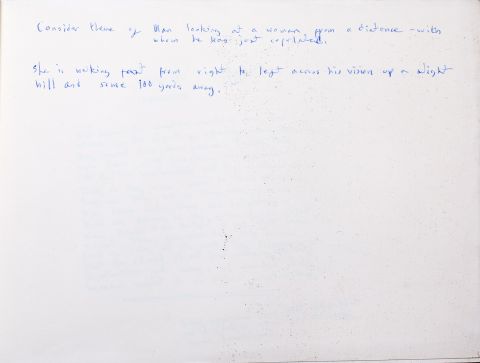 Consider theme of Man looking at a woman from a distance - with
whom he has just copulated.
She is walking past from right to left across his vision up a slight
hill and some 100 yards away.